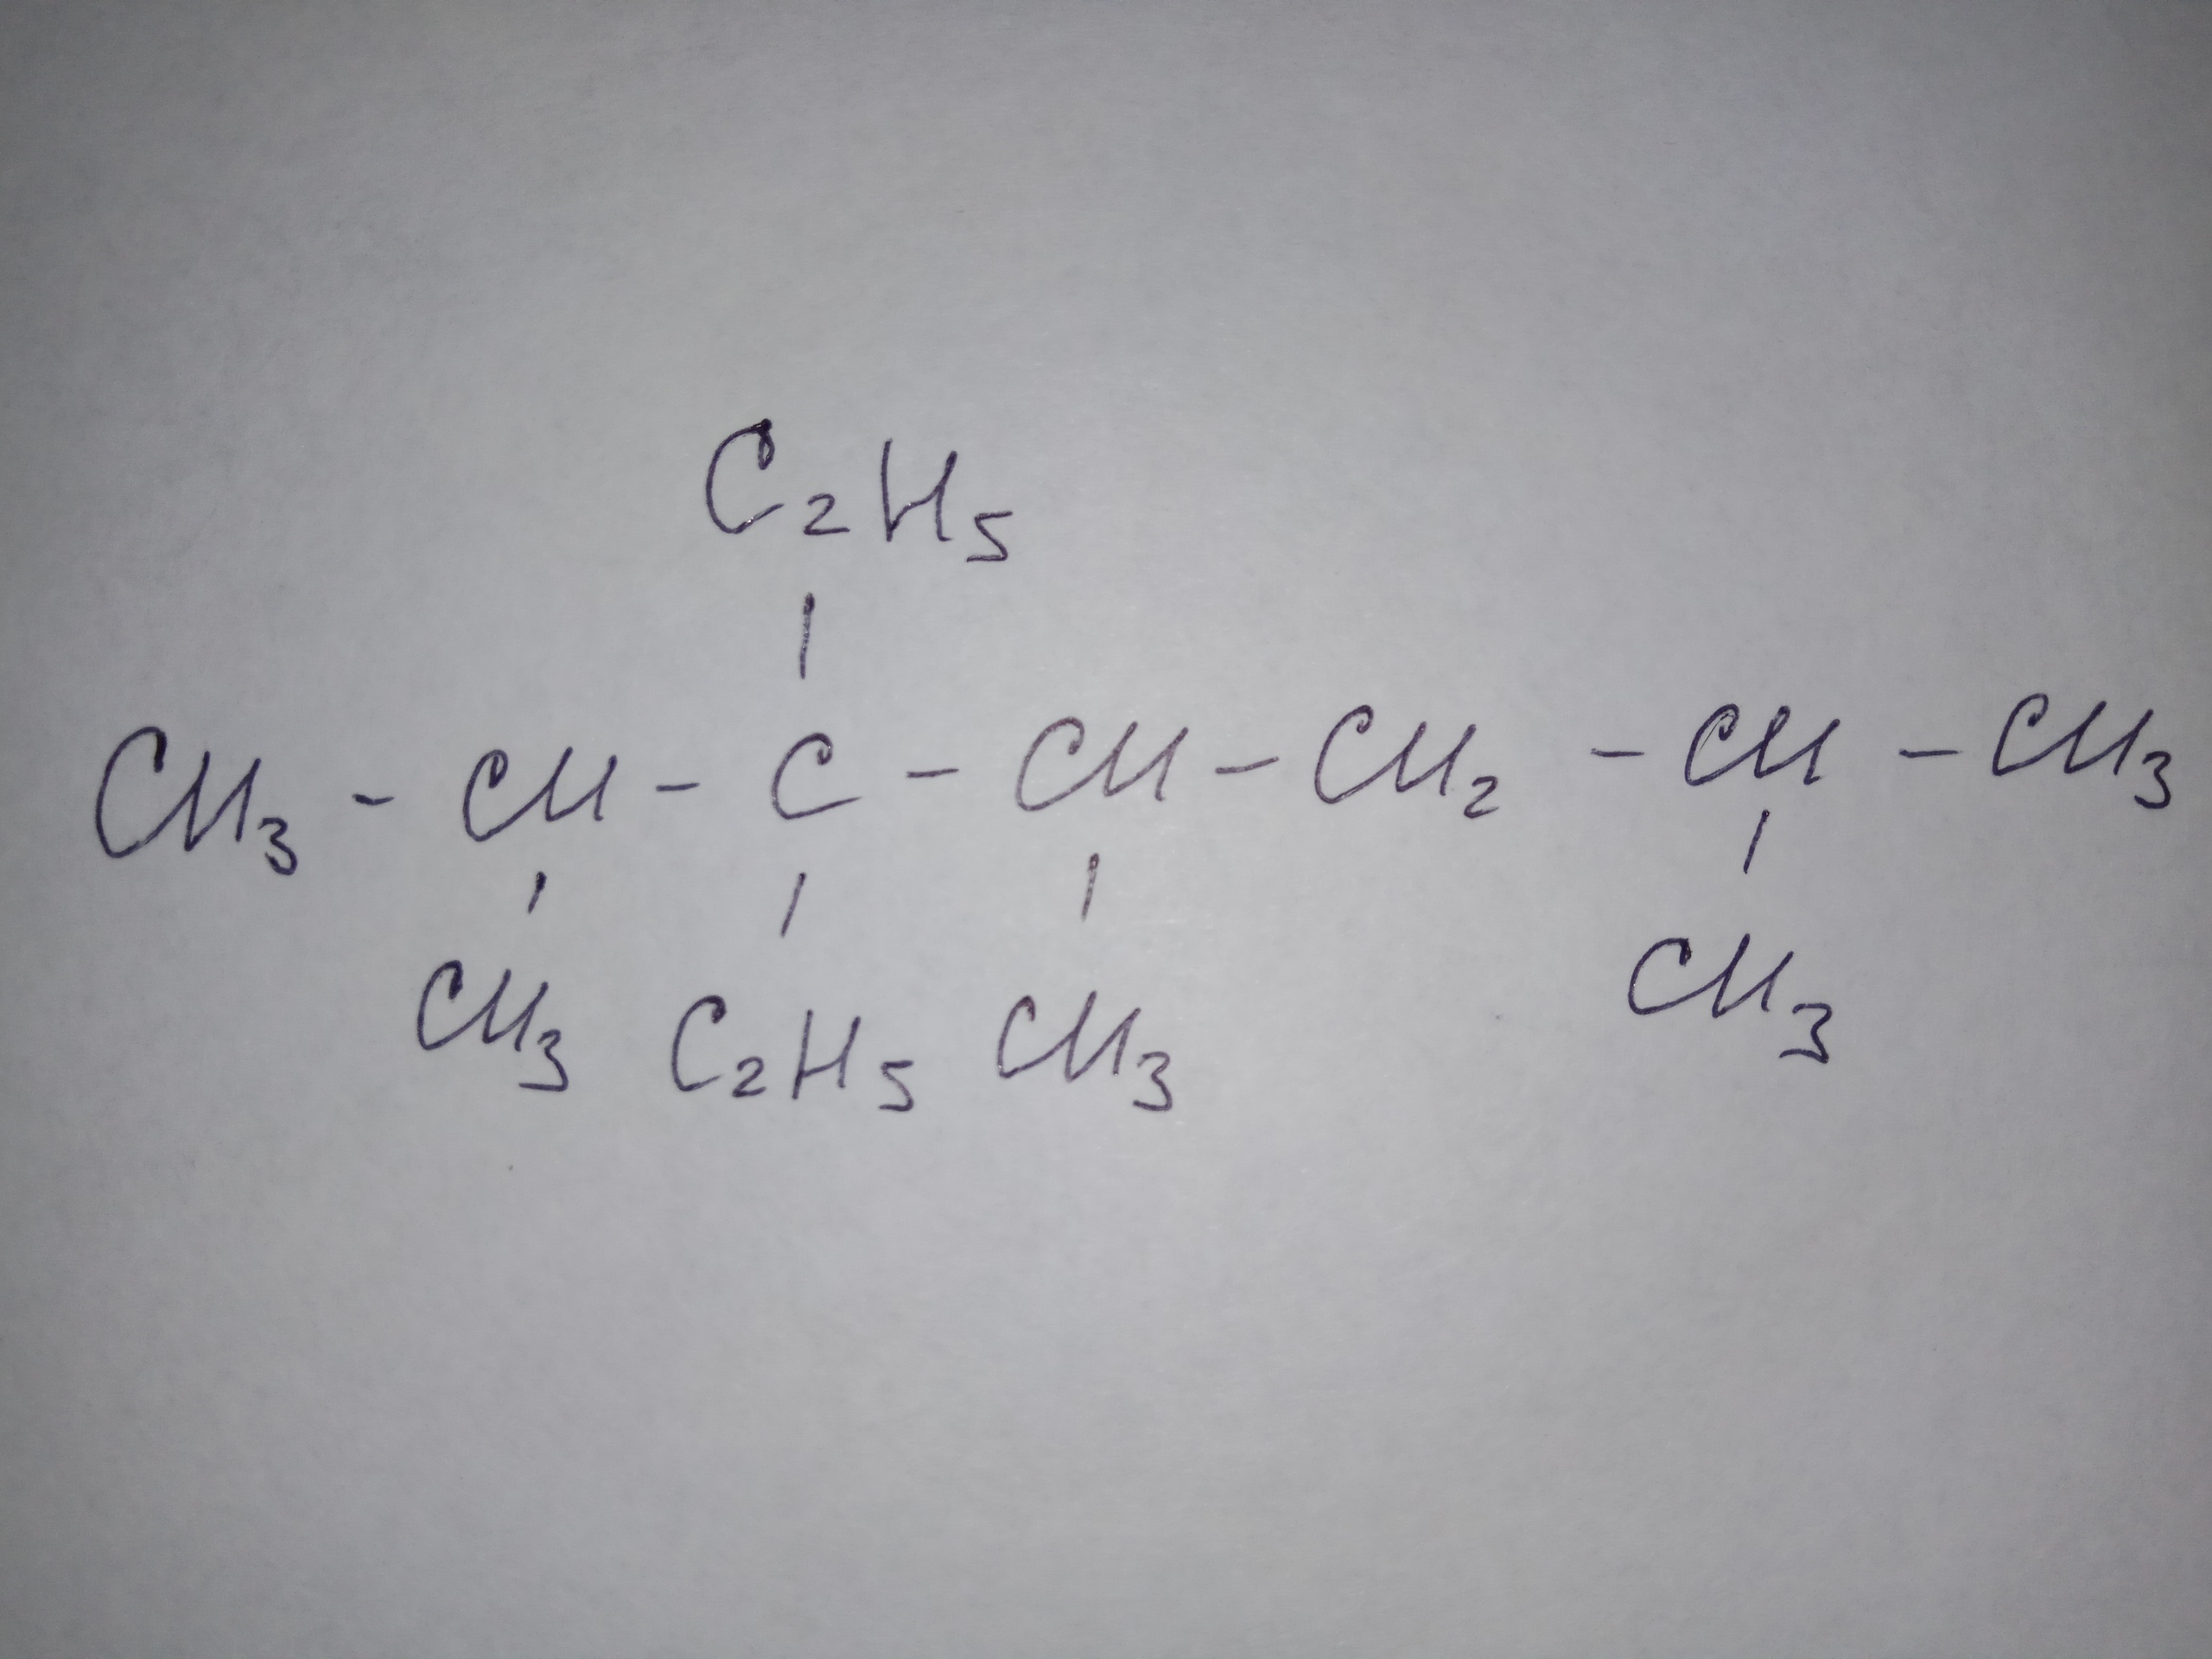 C2H5
CH3 - CH - C - CH - CH2 - CH - CH3
CH3 C2H5 CH3 CH3